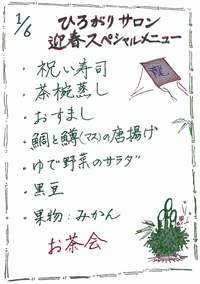 1/6
ひろがりサロン
迎春スペシャルメニュー
・祝い寿司
・茶椀蒸し
・おすまし
・鯛と鱒(マス)の唐揚げ
・ゆで野菜のサラダ
・黒豆
・果物:みかん
お茶会